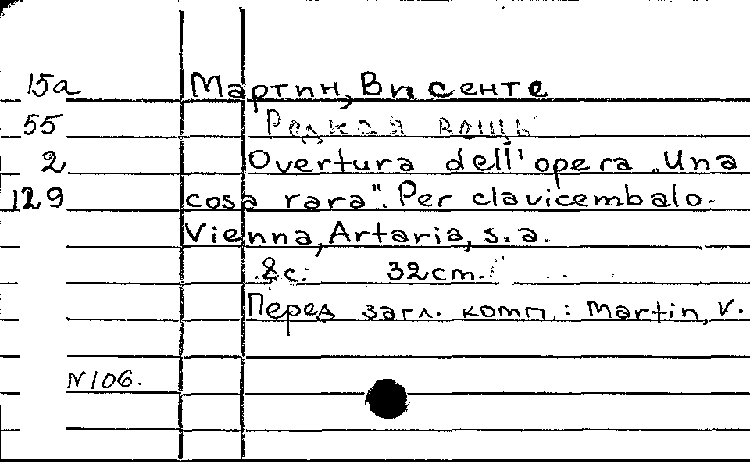 15а Мартин, Висенте
55 Редкая вещь
2 Overtura dell'opera „Una
129 cosa rara". Per clavicembalo.
Vienna, Artaria, s.a.
8 с. 32 cm.
Перед загл. комп.: Martin, V.
N106.